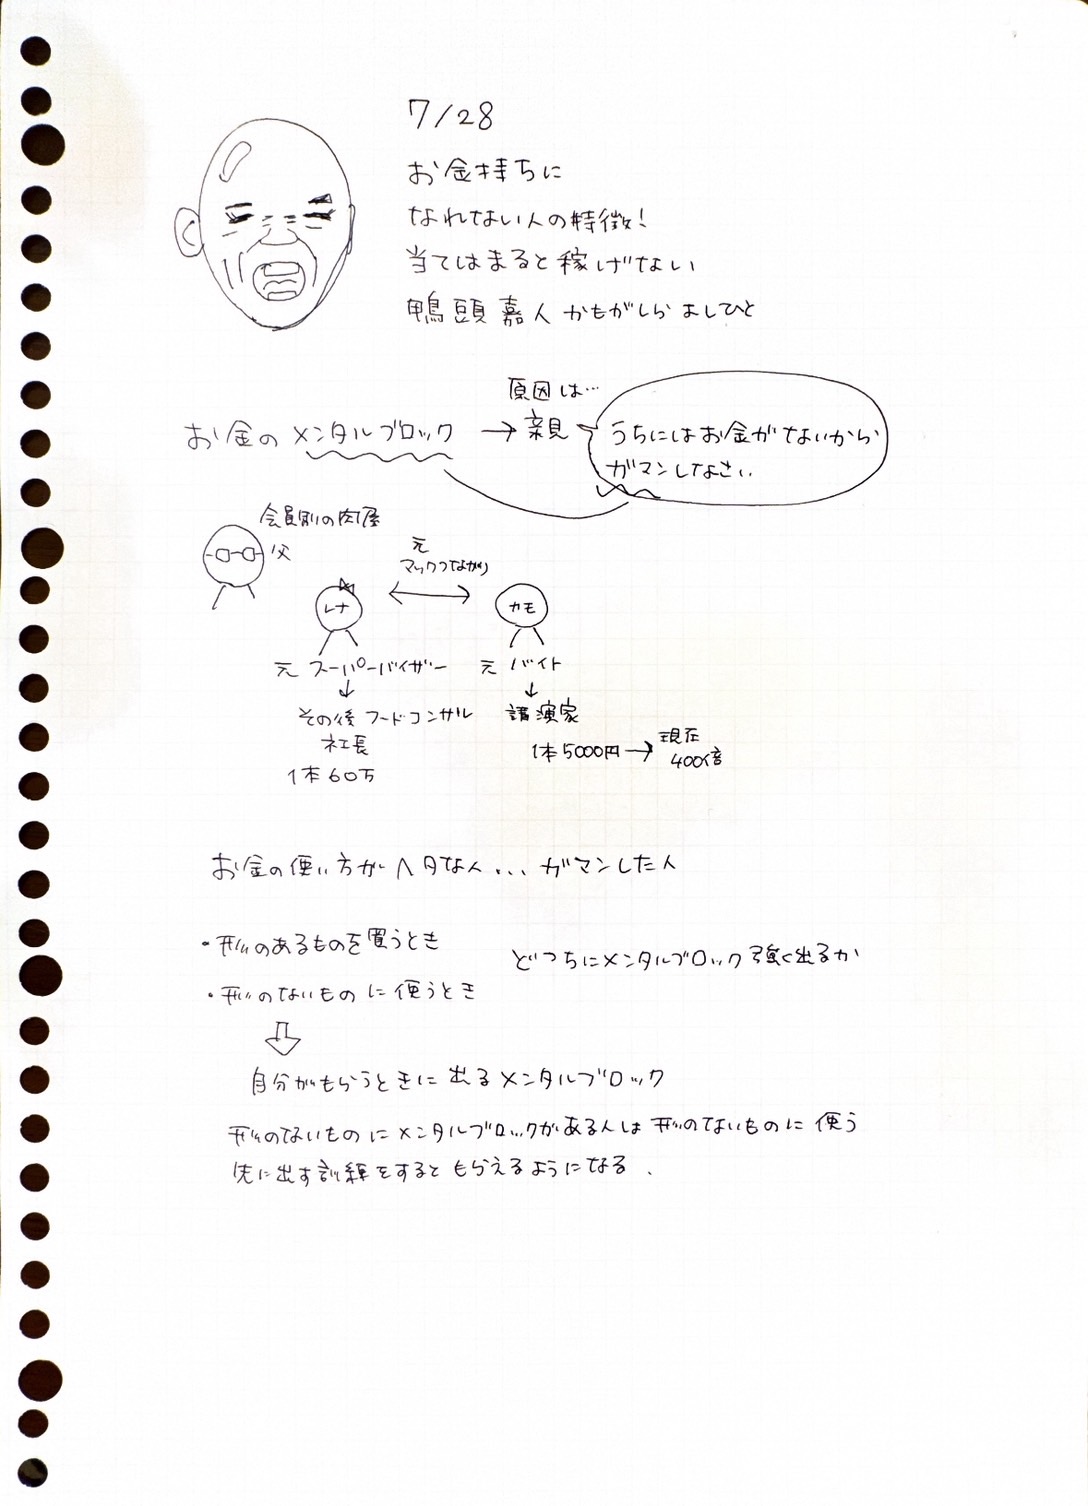 7/28
お金持ちに
なれない人の特徴!
当てはまると稼げない
鴨頭嘉人 かもがしら よしひと
原因は…
お金のメンタルブロック → 親
うちにはお金がないから
ガマンしなさい
会員制の肉屋
父
元
マックつながり
レナ
カモ
元 スーパーバイザー
元 バイト
↓
↓
その後 フードコンサル
社長
1本60万
講演家
1本5000円 → 現在
400倍
お金の使い方がヘタな人...ガマンした人
・形のあるものを買うとき
どっちにメンタルブロック強く出るか
・形のないものに使うとき
自分がもらうときに出るメンタルブロック
形のないものにメンタルブロックがある人は形のないものに使う
先に出す訓練をするともらえるようになる、